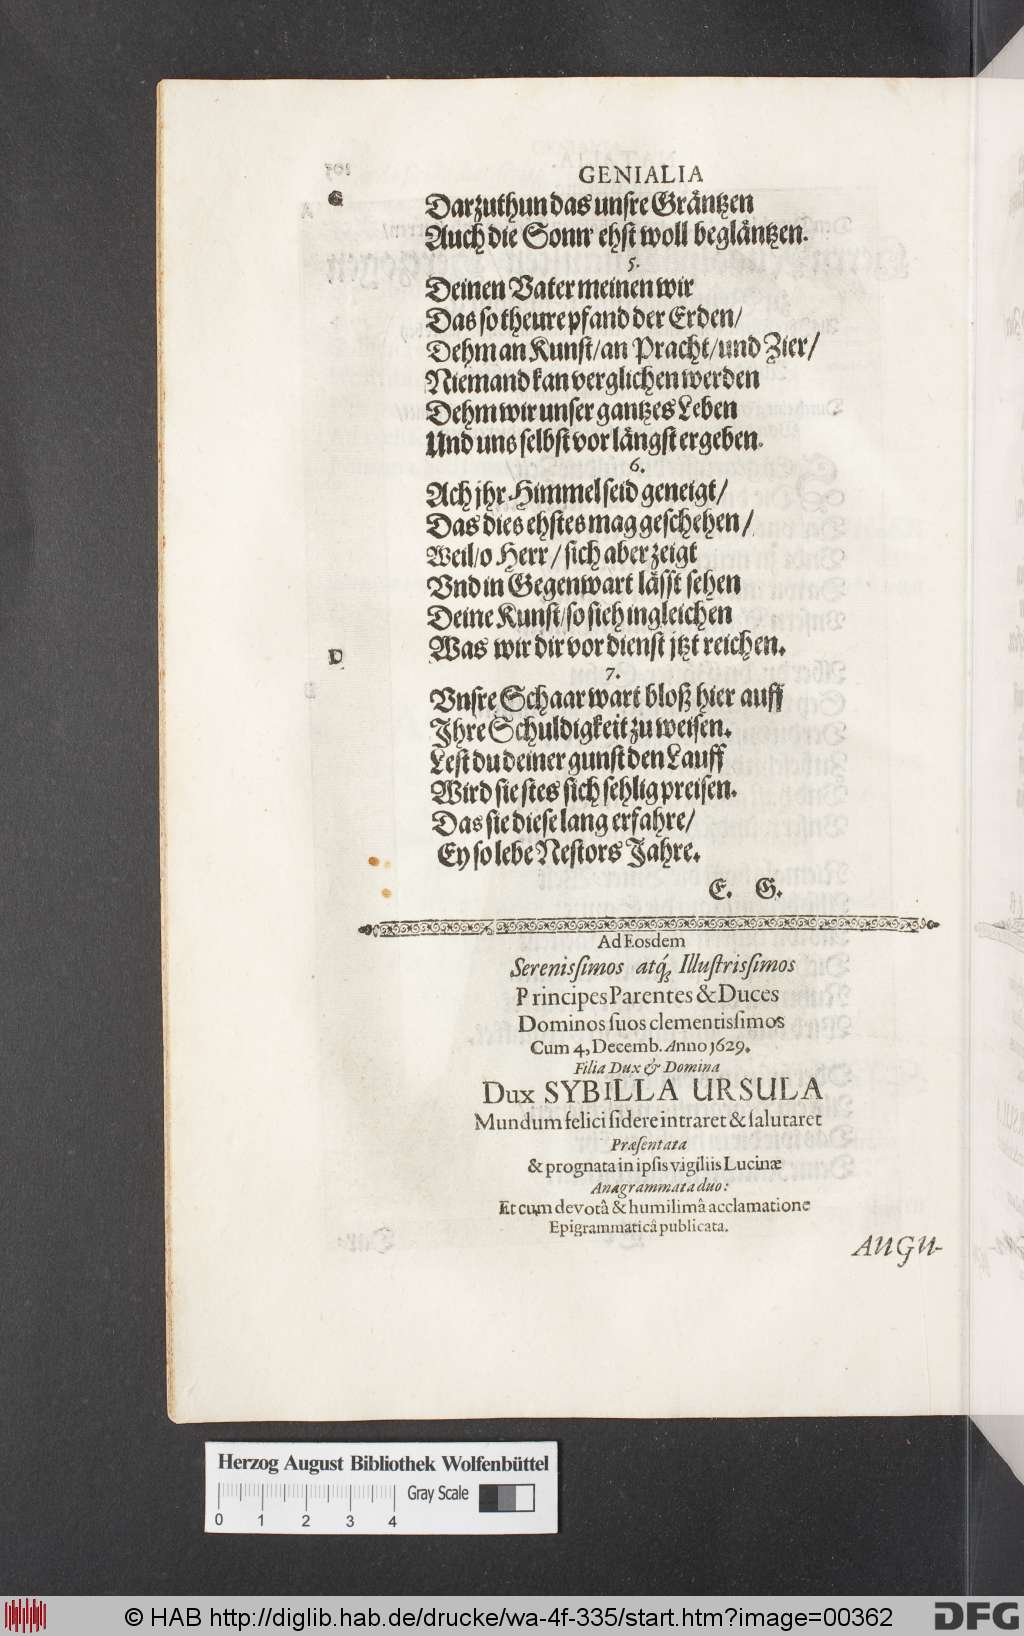 GENIALIA
G
Darzuthun das unsre Gräntzen
Auch die Sonn' ehst woll begläntzen.
5.
Deinen Vater meinen wir
Das so theure pfand der Erden/
Dehm an Kunst/an Pracht/und Zier/
Niemand kan verglichen werden
Dehm wir unser gantzes Leben
Und uns selbst vor längst ergeben.
6.
Ach jhr Himmel seid geneigt/
Das dies ehstes mag geschehen/
Weil/o Herr/ sich aber zeigt
Vnd in Gegenwart lässt sehen
Deine Kunst/so sieh ingleichen
D
Was wir dir vor dienst jtzt reichen.
7.
Vnsre Schaar wart bloß hier auff
Jhre Schuldigkeit zu weisen.
Lest du deiner gunst den Lauff
Wird sie stes sich sehlig preisen.
Das sie diese lang erfahre/
Ey so lebe Nestors Jahre.
E. G.
Ad Eosdem
Serenissimos atq́; Illustrissimos
Principes Parentes & Duces
Dominos suos clementissimos
Cum 4, Decemb. Anno 1629.
Filia Dux & Domina
Dux SYBILLA URSULA
Mundum felici sidere intraret & salutaret
Præsentata
& prognata in ipsis vigiliis Lucinæ
Anagrammata duo:
Et cum devotâ & humilimâ acclamatione
Epigrammaticâ publicata.
AUGU-
Herzog August Bibliothek Wolfenbüttel
Gray Scale
0 1 2 3 4
© HAB http://diglib.hab.de/drucke/wa-4f-335/start.htm?image=00362
DFG